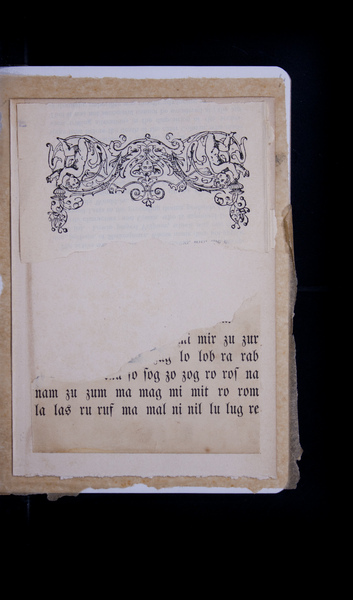 mir zu zur
lo lob ra rab
ſo ſog zo zog ro roſ na
nam zu zum ma mag mi mit ro rom
la las ru ruf ma mal ni nil lu lug re